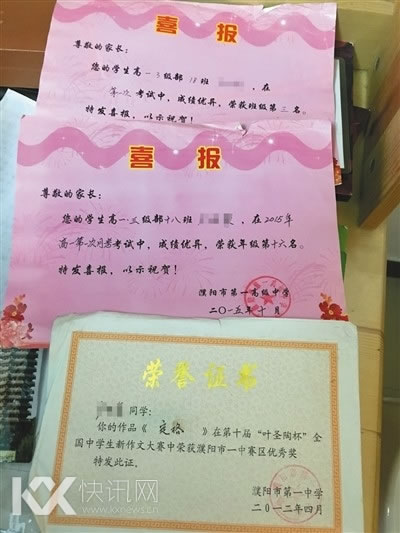 喜报
尊敬的家长：
您的学生高一·3级部18班，在
第一次考试中，成绩优异，荣获班级第三名。
特发喜报，以示祝贺！
喜报
尊敬的家长：
您的学生高一·三级部十八班，在2015年
高一第一次月考考试中，成绩优异，荣获年级第十六名。
特发喜报，以示祝贺！
濮阳市第一高级中学
二〇一五年十月
荣誉证书
同学：
你的作品《定格》在第十届“叶圣陶杯”全
国中学生新作文大赛中荣获濮阳市一中赛区优秀奖
特发此证。
濮阳市第一中学
二〇一二年四月
KX快讯网
www.kxnews.cn